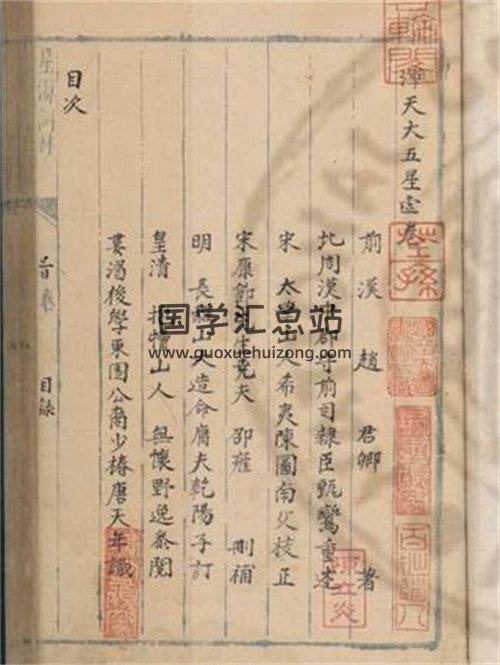 渾天大五星壹卷
前漢 趙 君卿 著
北周漢中郡守前司隸臣甄鸞重述
宋 太華山人希夷陳圖南父校正
宋康節先生堯夫 邵雍 刪補
明 長 山人造命腐夫乾陽子訂
皇清 山人 無懷野逸叅閱
後學東園公裔少椿唐天年識
目次
首卷
目錄
国学汇总站
www.guoxuehuizong.com